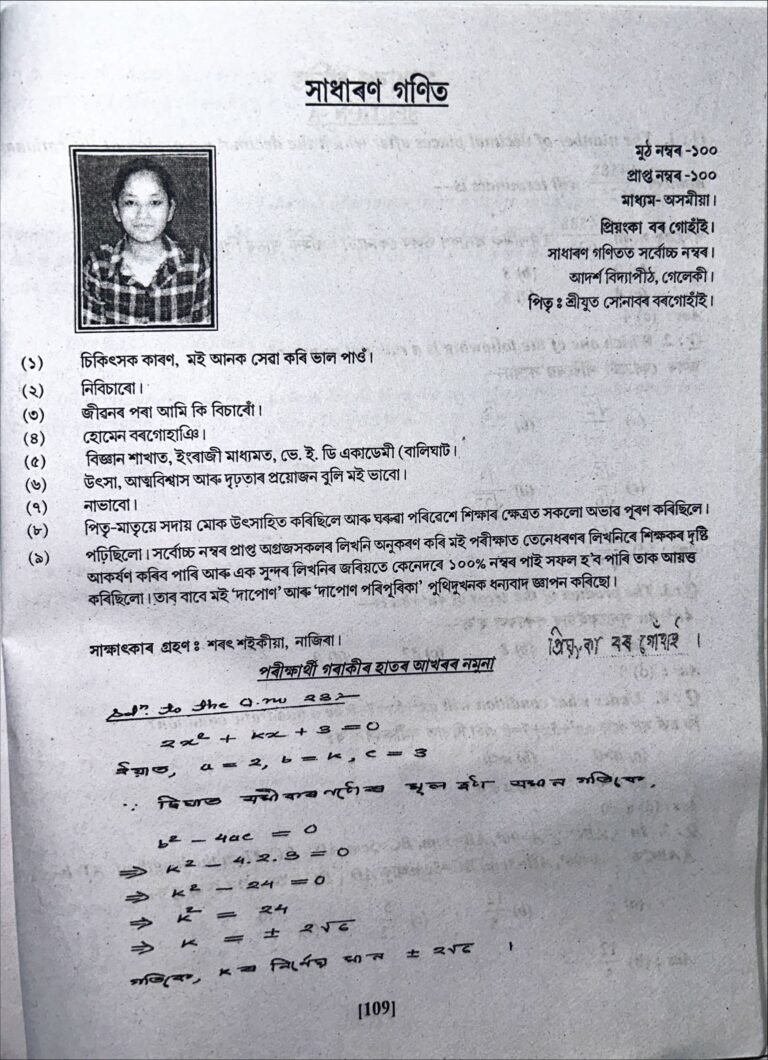 সাধাৰণ গণিত
মুঠ নম্বৰ -১০০
প্ৰাপ্ত নম্বৰ -১০০
মাধ্যম- অসমীয়া।
প্ৰিয়ংকা বৰ গোহাঁই।
সাধাৰণ গণিতত সৰ্বোচ্চ নম্বৰ।
আদৰ্শ বিদ্যাপীঠ, গেলেকী।
পিতৃ : শ্ৰীযুত সোনাবৰ বৰগোহাঁই।
(১) চিকিৎসক কাৰণ, মই আনক সেৱা কৰি ভাল পাওঁ।
(২) নিবিচাৰো।
(৩) জীৱনৰ পৰা আমি কি বিচাৰোঁ।
(৪) হোমেন বৰগোহাঞি।
(৫) বিজ্ঞান শাখাত, ইংৰাজী মাধ্যমত, ভে. ই. ডি একাডেমী (বালিঘাট।
(৬) উৎসা, আত্মবিশ্বাস আৰু দৃঢ়তাৰ প্ৰয়োজন বুলি মই ভাবো।
(৭) নাভাবো।
(৮) পিতৃ-মাতৃয়ে সদায় মোক উৎসাহিত কৰিছিলে আৰু ঘৰুৱা পৰিৱেশে শিক্ষাৰ ক্ষেত্ৰত সকলো অভাৱ পূৰণ কৰিছিলে।
(৯) পঢ়িছিলো। সৰ্বোচ্চ নম্বৰ প্ৰাপ্ত অগ্ৰজসকলৰ লিখনি অনুকৰণ কৰি মই পৰীক্ষাত তেনেধৰণৰ লিখনিৰে শিক্ষকৰ দৃষ্টি
আকৰ্ষণ কৰিব পাৰি আৰু এক সুন্দৰ লিখনিৰ জৰিয়তে কেনেদৰে ১০০% নম্বৰ পাই সফল হ'ব পাৰি তাক আয়ত্ত
কৰিছিলো। তাৰ বাবে মই 'দাপোণ' আৰু 'দাপোণ পৰিপূৰিকা' পুথিদুখনক ধন্যবাদ জ্ঞাপন কৰিছো।
সাক্ষাৎকাৰ গ্ৰহণ : শৰৎ শইকীয়া, নাজিৰা।
প্ৰিয়ংকা বৰ গোঁহাই ।
পৰীক্ষাৰ্থী গৰাকীৰ হাতৰ আখৰৰ নমুনা
Solⁿ. to the Q. no
2x² + kx + 3 = 0
ইয়াত, a = 2, b = k, c = 3
∵ দ্বিঘাত সমীকৰণটোৰ মূল দুটা সমান গতিকে,
b² - 4ac = 0
⇒ k² - 4.2.3 = 0
⇒ k² - 24 = 0
⇒ k² = 24
⇒ k = ± 2√৬
গতিকে, k ৰ নিৰ্ণেয় মান ± 2√৬ ।
[109]